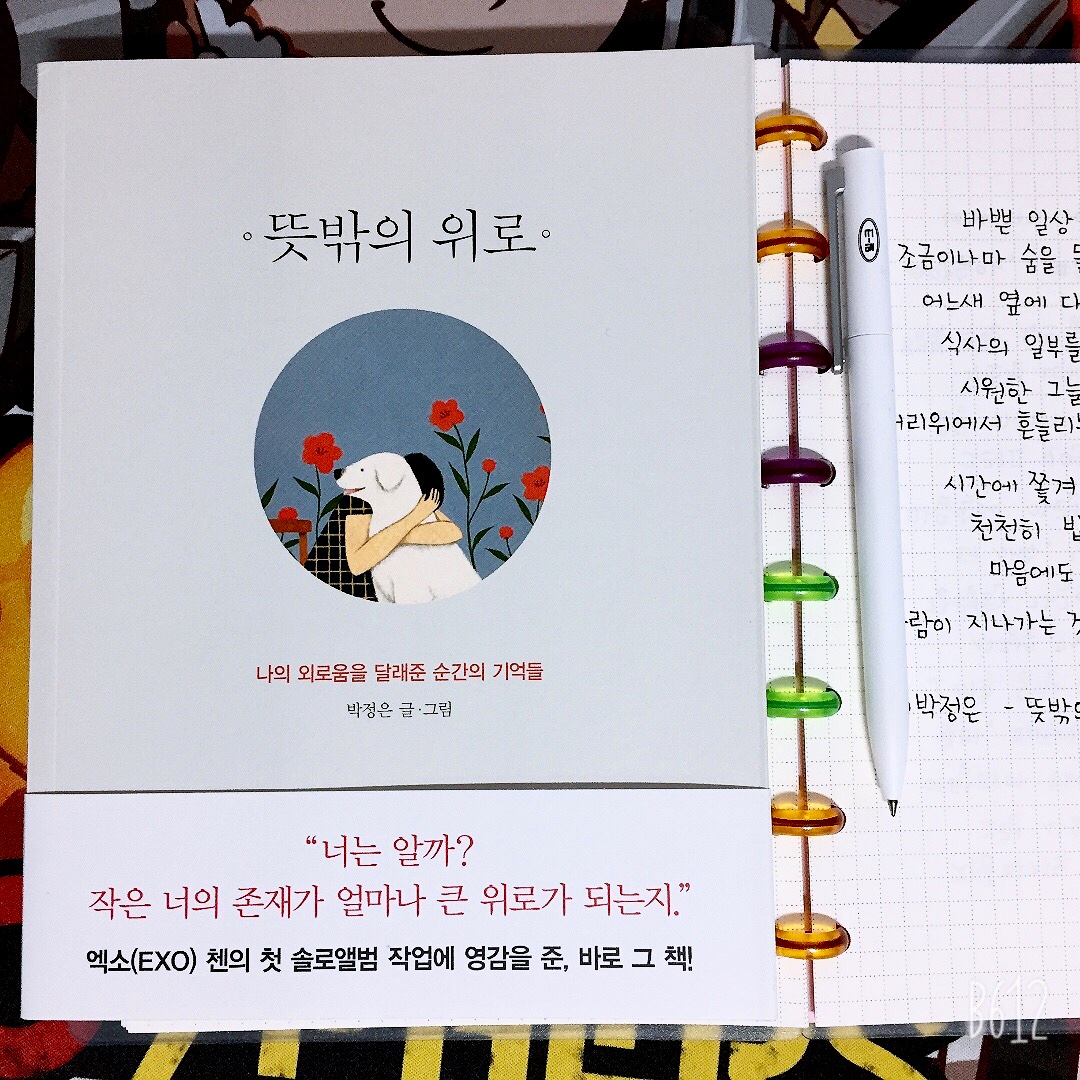 뜻밖의 위로
나의 외로움을 달래준 순간의 기억들
박정은 글·그림
“너는 알까?
작은 너의 존재가 얼마나 큰 위로가 되는지.”
엑소(EXO) 첸의 첫 솔로앨범 작업에 영감을 준, 바로 그 책!
바쁜 일상
조금이나마 숨을
어느새 옆에 다
식사의 일부를
시원한 그늘
머리위에서 흔들리는
시간에 쫓겨
천천히 밥
마음에도
사람이 지나가는 것
박정은 - 뜻밖의
B612